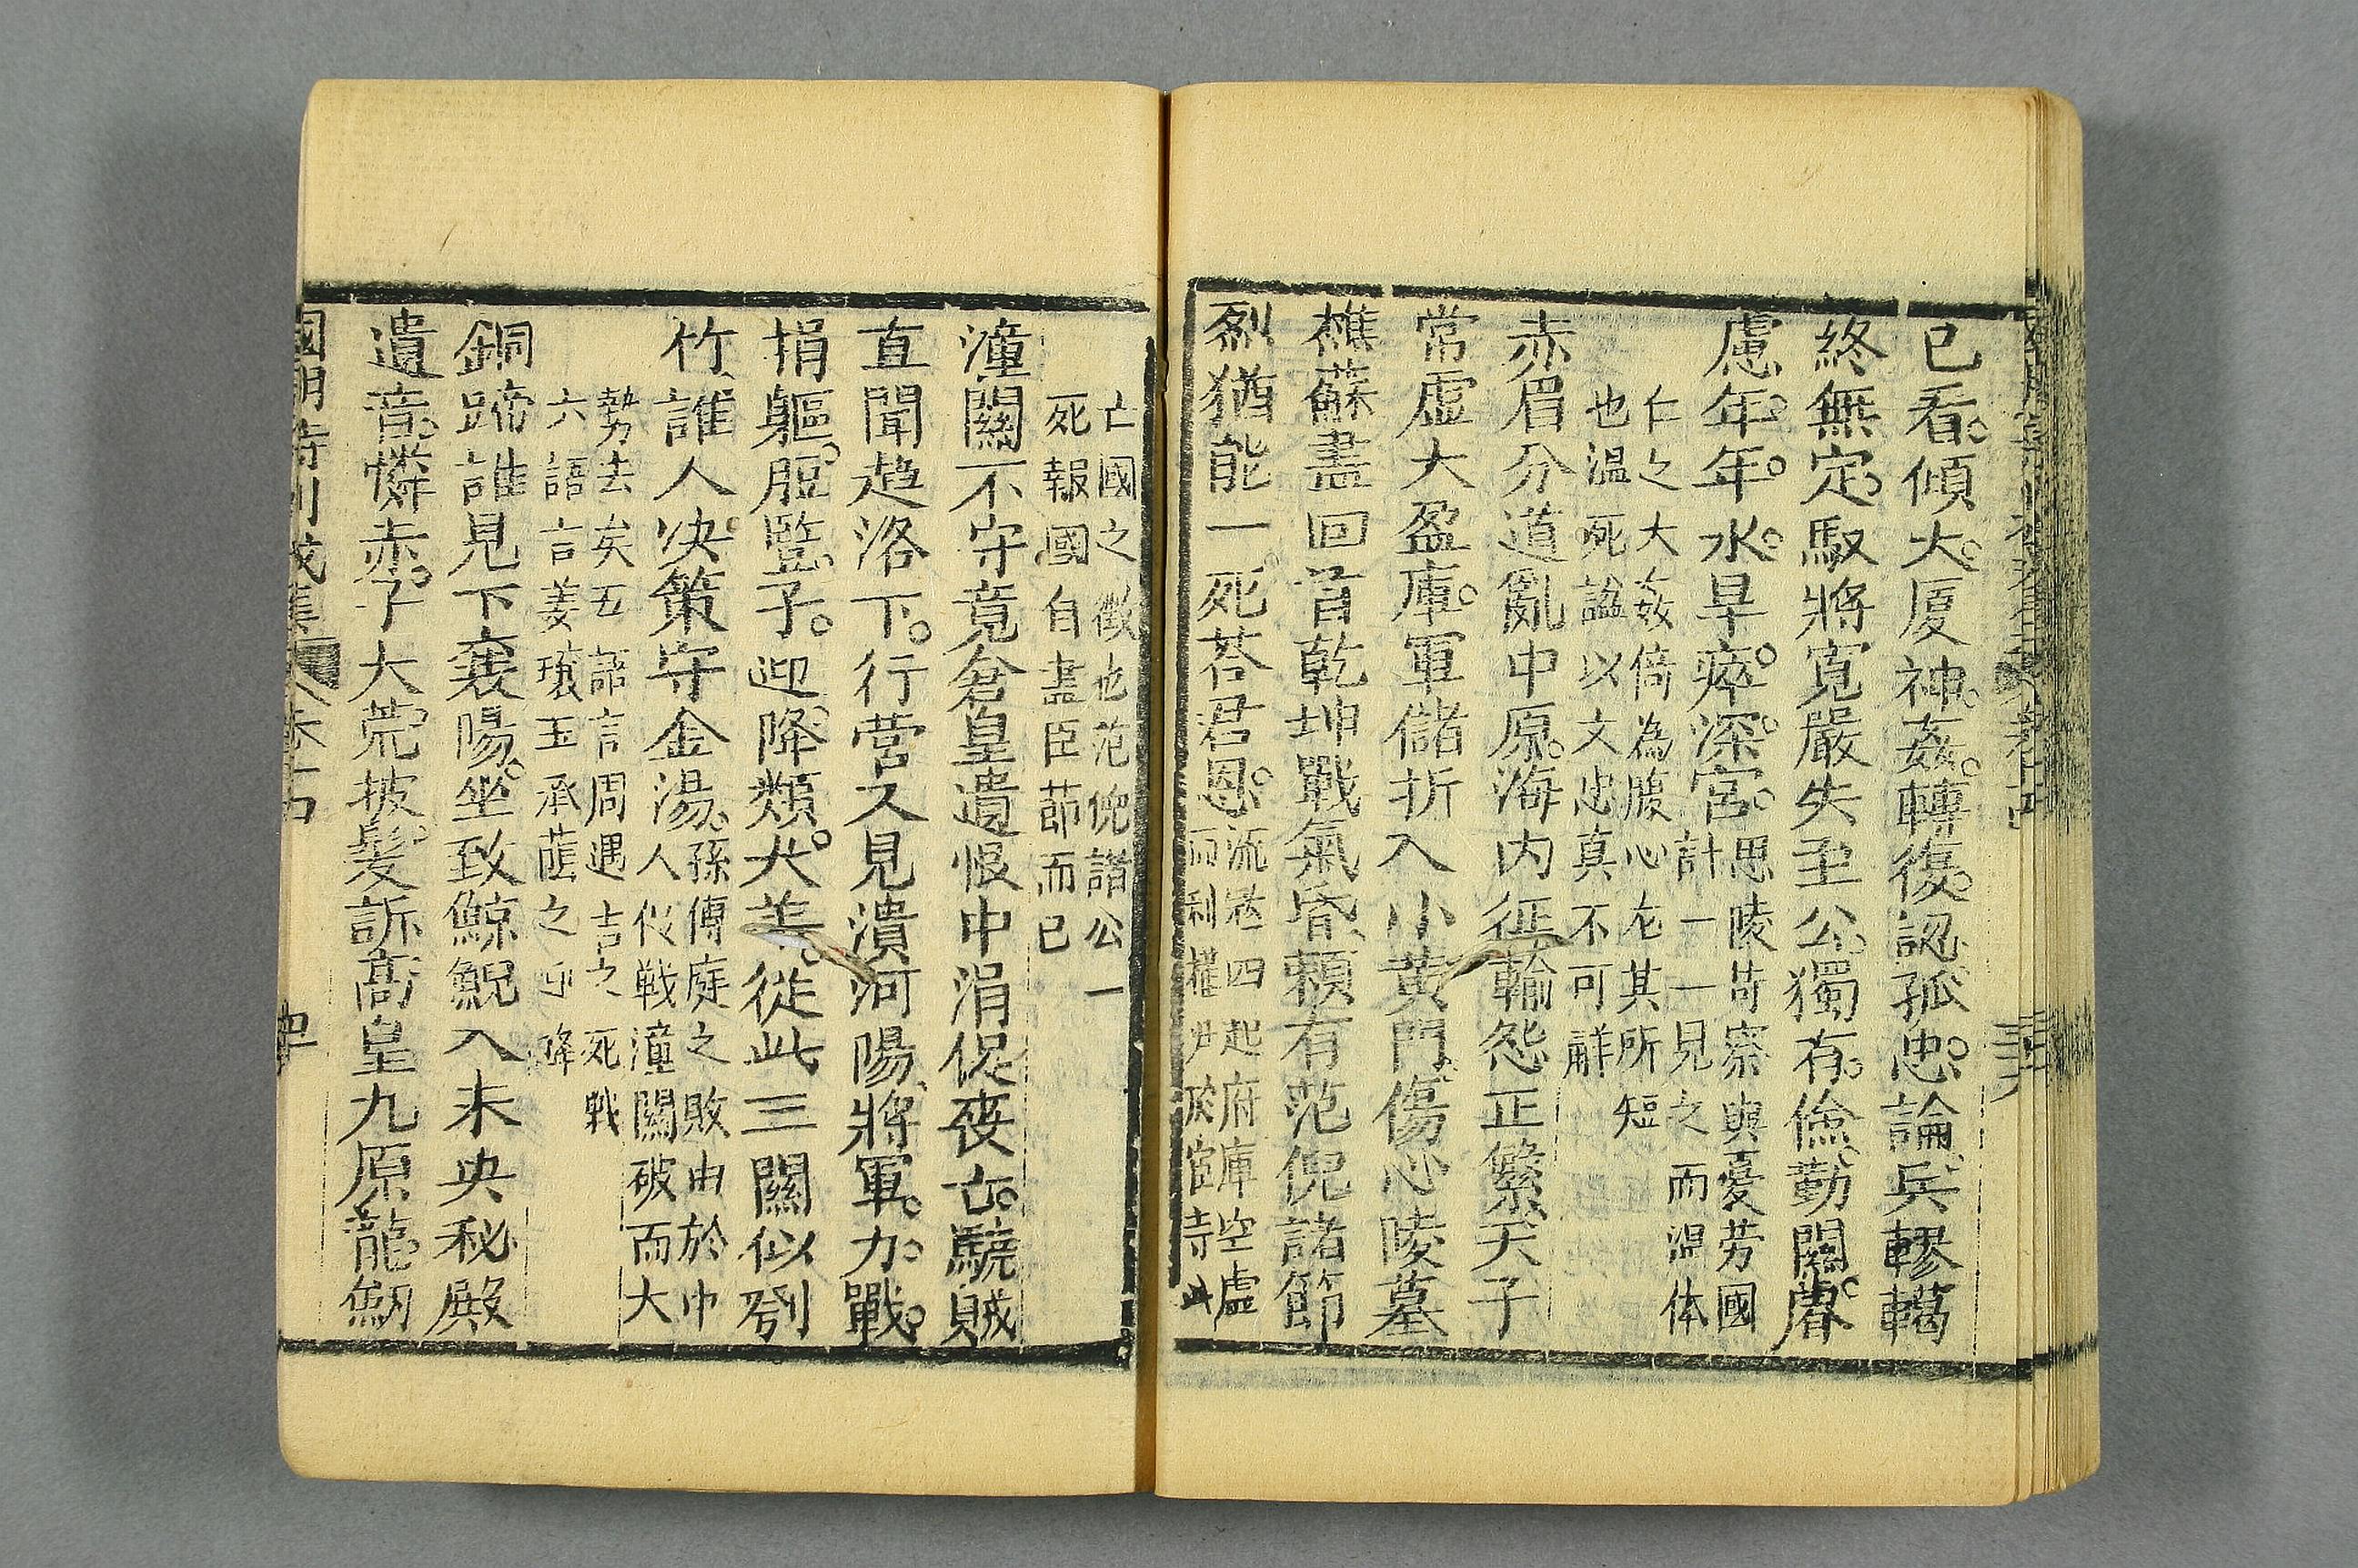 已看傾大厦神姦轉復認孤忠論兵轇轕
終無定馭將寬嚴失至公獨有儉勤關睿
慮年年水旱瘁深宮思陵苛察與憂勞國
計一一見之而温体
仁之大姦倚為腹心尨其所短
也温死諡以文忠真不可觧
赤眉分道亂中原海内征輸怨正繁天子
常虛大盈庫軍儲折入小黄門傷心陵墓
樵蘇盡回首乾坤戰氣昏頼有范倪諸節
烈猶能一死荅君恩流冦四起府庫空虛
而利權𠃔於宦寺此
亡國之徴也范倪諸公一
死報國自盡臣莭而已
潼關不守竟倉皇遺恨中涓促丧亡驍賊
直聞趋洛下行營又見潰河陽將軍力戰
捐軀脰豎子迎降類犬羊從此三關似劈
竹誰人决策守金湯孫傅庭之敗由於中
人促戦潼關破而大
勢去矣五語言周遇吉之死戦
六語言姜瓖王承蔭之迎降
銅蹄誰見下襄陽坐致鯨鯢入未央秘殿
遺音憐赤子大荒披髮訴高皇九原龍劒
國朝詩別裁集 卷十四